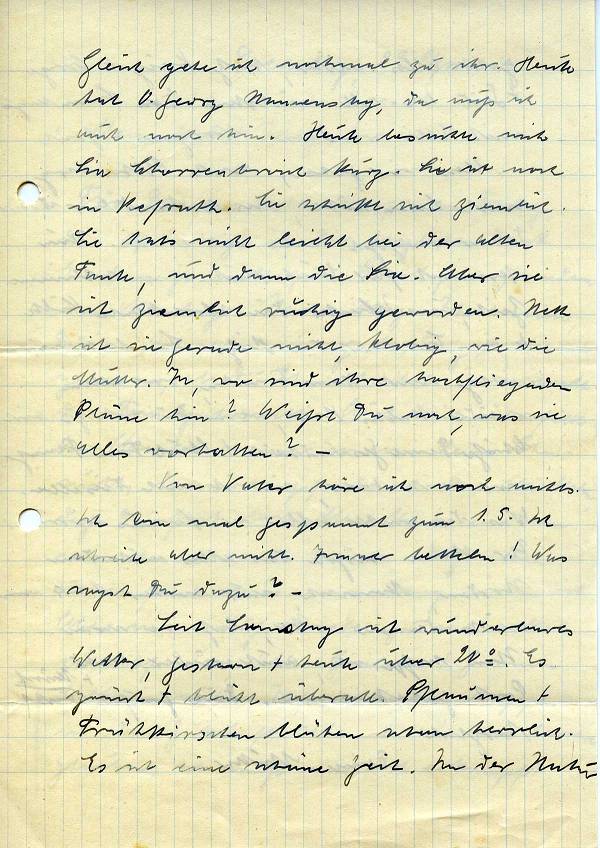 Gleich gehe ich nochmal zu ihr. Heute
hat O. Georg Namenstag, da muß ich
auch noch hin. Heute besuchte mich
die kurz. Sie ist noch
in Refrath. Sie schickt sich ziemlich.
Sie hat's nicht leicht bei der alten
Tante, und dann die Sie. Aber sie
ist ziemlich ruhig geworden. Nett
ist sie gerade nicht, klobig, wie die
Mutter. Ja, wo sind ihre hochfliegenden
Pläne hin? Weißt Du noch, was sie
alles vorhatten? –
Von Vater höre ich noch nichts.
Ich bin mal gespannt zum 1.5. Ich
schreibe aber nicht. Immer betteln! Was
sagst Du dazu? –
Seit Samstag ist wunderbares
Wetter, gestern + heute über 20°. Es
grünt + blüht überall. Pflaumen +
Frühkirschen blühen schon herrlich.
Es ist eine schöne Zeit. In der Natur